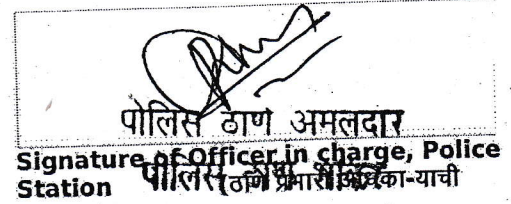 पोलिस ठाणे अमलदार
Signature of Officer in charge, Police
Station पोलिस ठाणे (ठाणे प्रभारी अधिका-याची